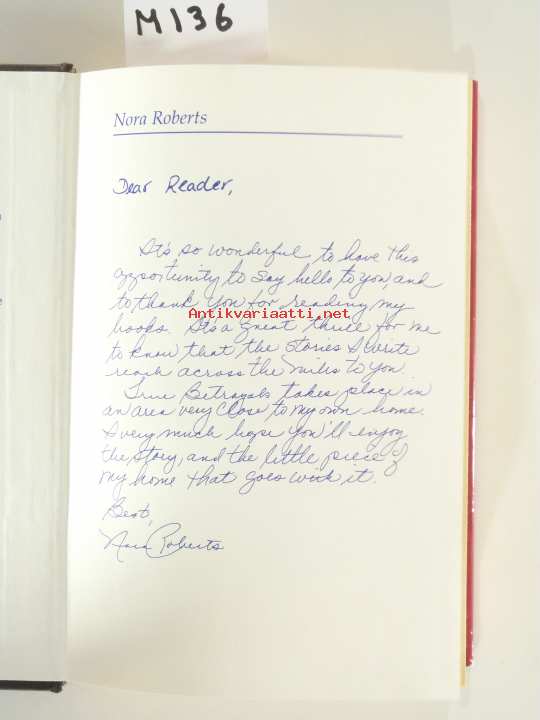 M136
Nora Roberts
Dear Reader,
It's so wonderful to have this
opportunity to say hello to you, and
to thank you for reading my
Antikvariaatti.net
books. It's a great thrill for me
to know that the stories I write
reach across the miles to you.
True Betrayals takes place in
an area very close to my own home.
I very much hope you'll enjoy
the story, and the little piece of
my home that goes with it.
Best,
Nora Roberts